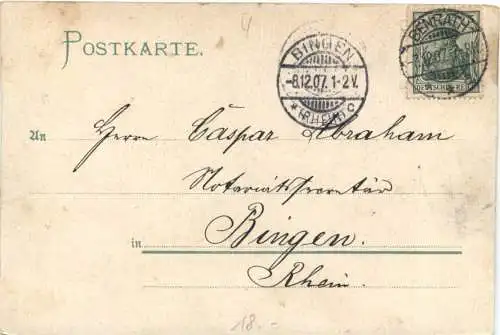 POSTKARTE.
BINGEN
-8.12.07. 1-2V.
* (RHEIN) c
BENRATH
DEUTSCHES REICH
An Herrn Caspar Abraham
Notariatssecretär
in Bingen.
Rhein.
18.-